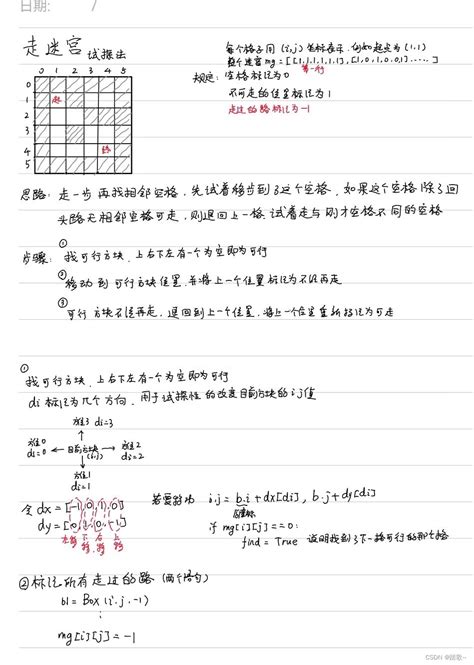 日期: /
走迷宫 试探法
每个格子用 (i,j) 坐标表示, 例如起点为 (1,1)
整个迷宫 mg = [[1,1,1,1,1,1], [1,0,1,0,0,1] .....]
第一行
规定: 空格标记为0
不可走的位置标记为1
走过的路标记为-1
0 1 2 3 4 5
0
1 起
2
3
4 终
5
思路: 走一步再找相邻空格, 先试着移步到了这个空格, 如果这个空格除了回
头路无相邻空格可走, 则退回上一格, 试着走与刚才空格不同的空格
步骤: ① 找可行方块, 上右下左有一个为空即为可行
② 移动到可行方块位置, 并将上一个位置标记为不能再走
③ 可行方块不能再走, 退回到上一个位置, 将上一个位置重新标记为可走
①
找可行方块, 上右下左有一个为空即为可行
di 标记为几个方向, 用于试探性的改变目前方块的 i,j 值
方位3 di=3
方位0 di=0 ← 目前方块 (i,j) → 方位2 di=2
方位1 di=1
令 dx = [-1, 0, 1, 0]
dy = [0, 1, 0, -1]
左移 下移 右移 上移
若要移动 i,j = b.i + dx[di], b.j + dy[di]
原坐标
if mg[i][j] == 0:
find = True 说明找到了下一格可行的那个格
② 标记所有走过的路 (两个语句)
b1 = Box (i, j, -1)
⋮
mg[i][j] = -1